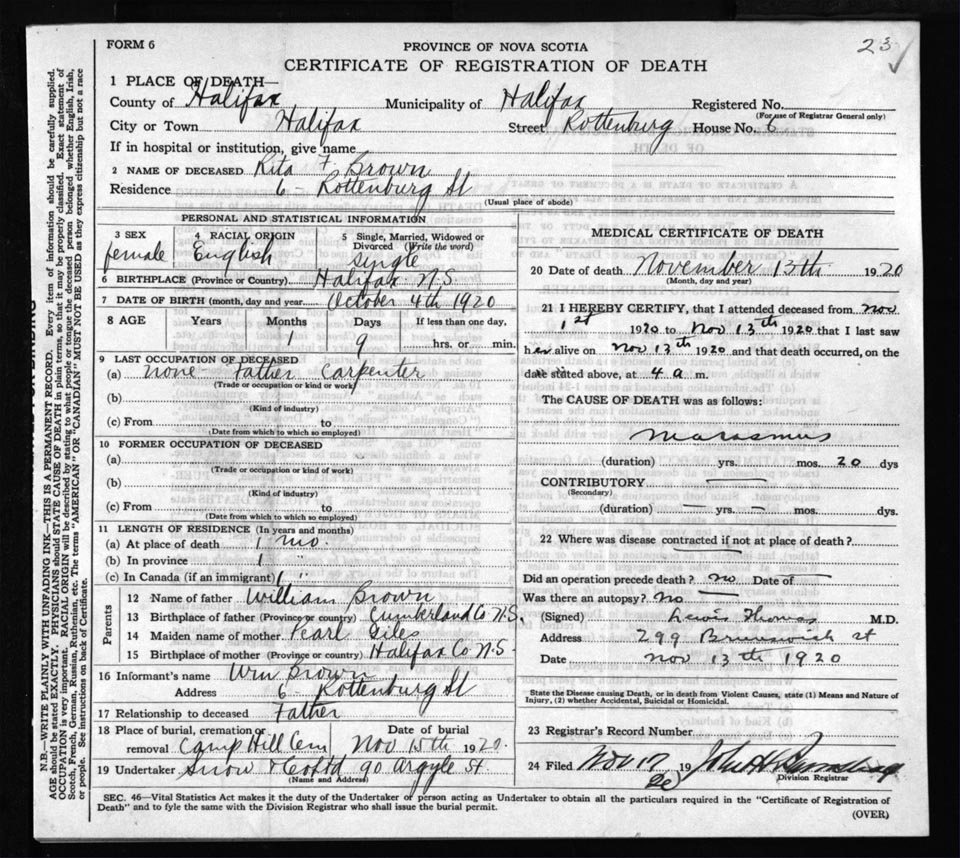 FORM 6
PROVINCE OF NOVA SCOTIA
23
CERTIFICATE OF REGISTRATION OF DEATH
1 PLACE OF DEATH—
County of Halifax Municipality of Halifax Registered No.
(For use of Registrar General only)
City or Town Halifax Street Rottenburg House No. 6
If in hospital or institution, give name
2 NAME OF DECEASED Rita F Brown
Residence 6 - Rottenburg St
(Usual place of abode)
PERSONAL AND STATISTICAL INFORMATION
3 SEX 4 RACIAL ORIGIN 5 Single, Married, Widowed or
Divorced (Write the word)
female English single
6 BIRTHPLACE (Province or Country) Halifax N.S.
7 DATE OF BIRTH (month, day and year) October 4th 1920
8 AGE Years Months Days If less than one day,
1 9 hrs. or min.
9 LAST OCCUPATION OF DECEASED
(a) none - Father Carpenter
(Trade or occupation or kind of work)
(b)
(Kind of industry)
(c) From to
(Date from which to which so employed)
10 FORMER OCCUPATION OF DECEASED
(a)
(Trade or occupation or kind of work)
(b)
(Kind of industry)
(c) From to
(Date from which to which so employed)
11 LENGTH OF RESIDENCE (In years and months)
(a) At place of death 1 mo.
(b) In province 1 "
(c) In Canada (if an immigrant) 1 "
Parents
12 Name of father William Brown
13 Birthplace of father (Province or country) Cumberland Co N.S.
14 Maiden name of mother Pearl Giles
15 Birthplace of mother (Province or country) Halifax Co N.S.
16 Informant's name Wm Brown
Address 6 - Rottenburg St
17 Relationship to deceased Father
18 Place of burial, cremation or Date of burial
removal Camp Hill Cem Nov 15th 1920.
19 Undertaker Snow & Co Ltd 90 Argyle St.
(Name and Address)
MEDICAL CERTIFICATE OF DEATH
20 Date of death November 13th 1920
(Month, day and year)
21 I HEREBY CERTIFY, that I attended deceased from Nov
1st 1920 to Nov 13th 1920 that I last saw
her alive on Nov 13th 1920 and that death occurred, on the
date stated above, at 4 a m.
The CAUSE OF DEATH was as follows:
Marasmus
(duration) yrs. mos. 20 dys
CONTRIBUTORY —
(Secondary)
(duration) — yrs. — mos. dys.
22 Where was disease contracted if not at place of death?
—
Did an operation precede death? no Date of —
Was there an autopsy? no —
(Signed) Lewis Thomas M.D.
Address 299 Brunswick st
Date Nov 13th 1920
State the Disease causing Death, or in death from Violent Causes, state (1) Means and Nature of
Injury, (2) whether Accidental, Suicidal or Homicidal.
23 Registrar's Record Number
24 Filed Nov 17 19 John H
20
Division Registrar
SEC. 46—Vital Statistics Act makes it the duty of the Undertaker or person acting as Undertaker to obtain all the particulars required in the "Certificate of Registration of
Death" and to fyle the same with the Division Registrar who shall issue the burial permit.
(OVER)
N.B.—WRITE PLAINLY WITH UNFADING INK—THIS IS A PERMANENT RECORD. Every item of information should be carefully supplied.
AGE should be stated EXACTLY. PHYSICIANS should STATE CAUSE OF DEATH in plain terms, so that it may be properly classified. Exact statement of
OCCUPATION is very important. RACIAL ORIGIN will be described by stating to what people or tongue the deceased person belonged whether English, Irish,
Scotch, French, German, Russian, Ruthenian, etc. The terms "AMERICAN" OR "CANADIAN" MUST NOT BE USED as they express citizenship but not a race
or people. See instructions on back of Certificate.